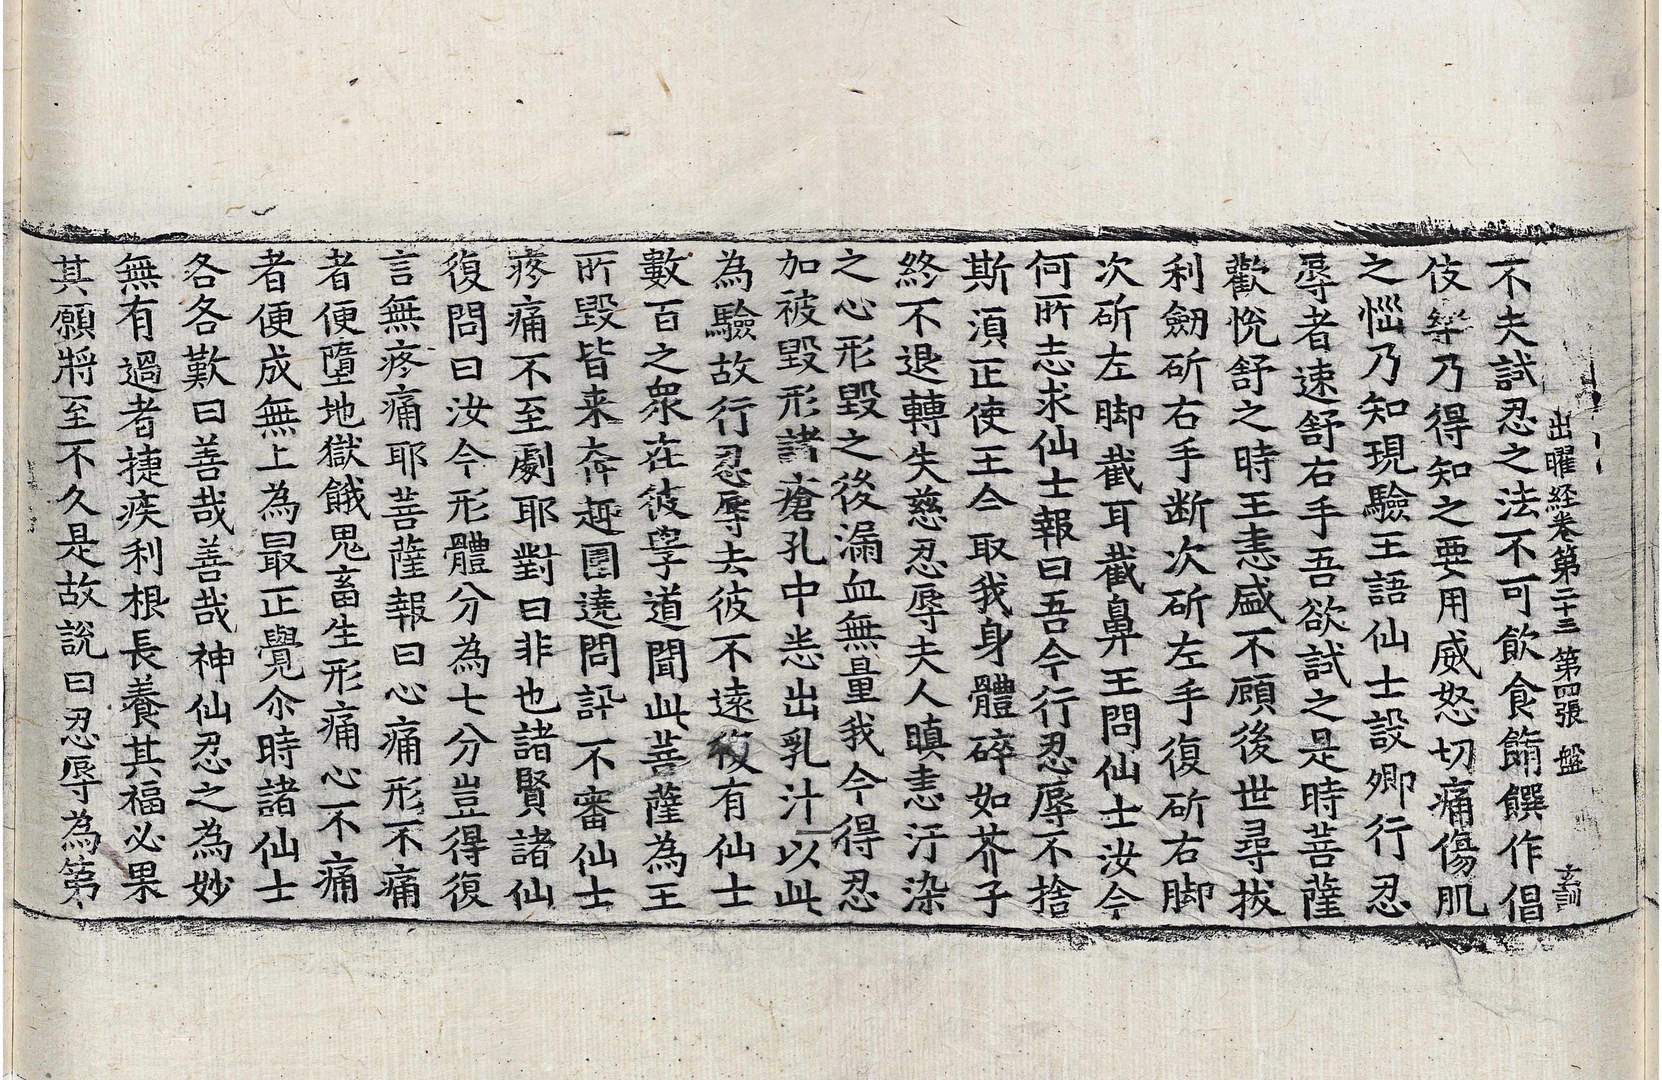 出曜経卷第二十三 第四張 盤 玄訓
不夫試忍之法不可飲食餚饌作倡
伎樂乃得知之要用威怒切痛傷肌
之惱乃知現驗王語仙士設卿行忍
辱者速舒右手吾欲試之是時菩薩
歡悅舒之時王恚盛不顧後世尋拔
利劒斫右手断次斫左手復斫右脚
次斫左脚截耳截鼻王問仙士汝今
何所志求仙士報曰吾今行忍辱不捨
斯湏正使王今取我身體碎如芥子
終不退轉失慈忍辱夫人瞋恚汙染
之心形毀之後漏血無量我今得忍
加被毀形諸瘡孔中悉出乳汁以此
為驗故行忍辱去彼不遠復有仙士
數百之衆在彼學道聞此菩薩為王
所毀皆来奔趣圍遶問訊不審仙士
疼痛不至劇耶對曰非也諸賢諸仙
復問曰汝今形體分為七分豈得復
言無疼痛耶菩薩報曰心痛形不痛
者便墮地獄餓鬼畜生形痛心不痛
者便成無上為㝡正覺尒時諸仙士
各各歎曰善哉善哉神仙忍之為妙
無有過者捷疾利根長養其福必果
其願將至不久是故說曰忍辱為第